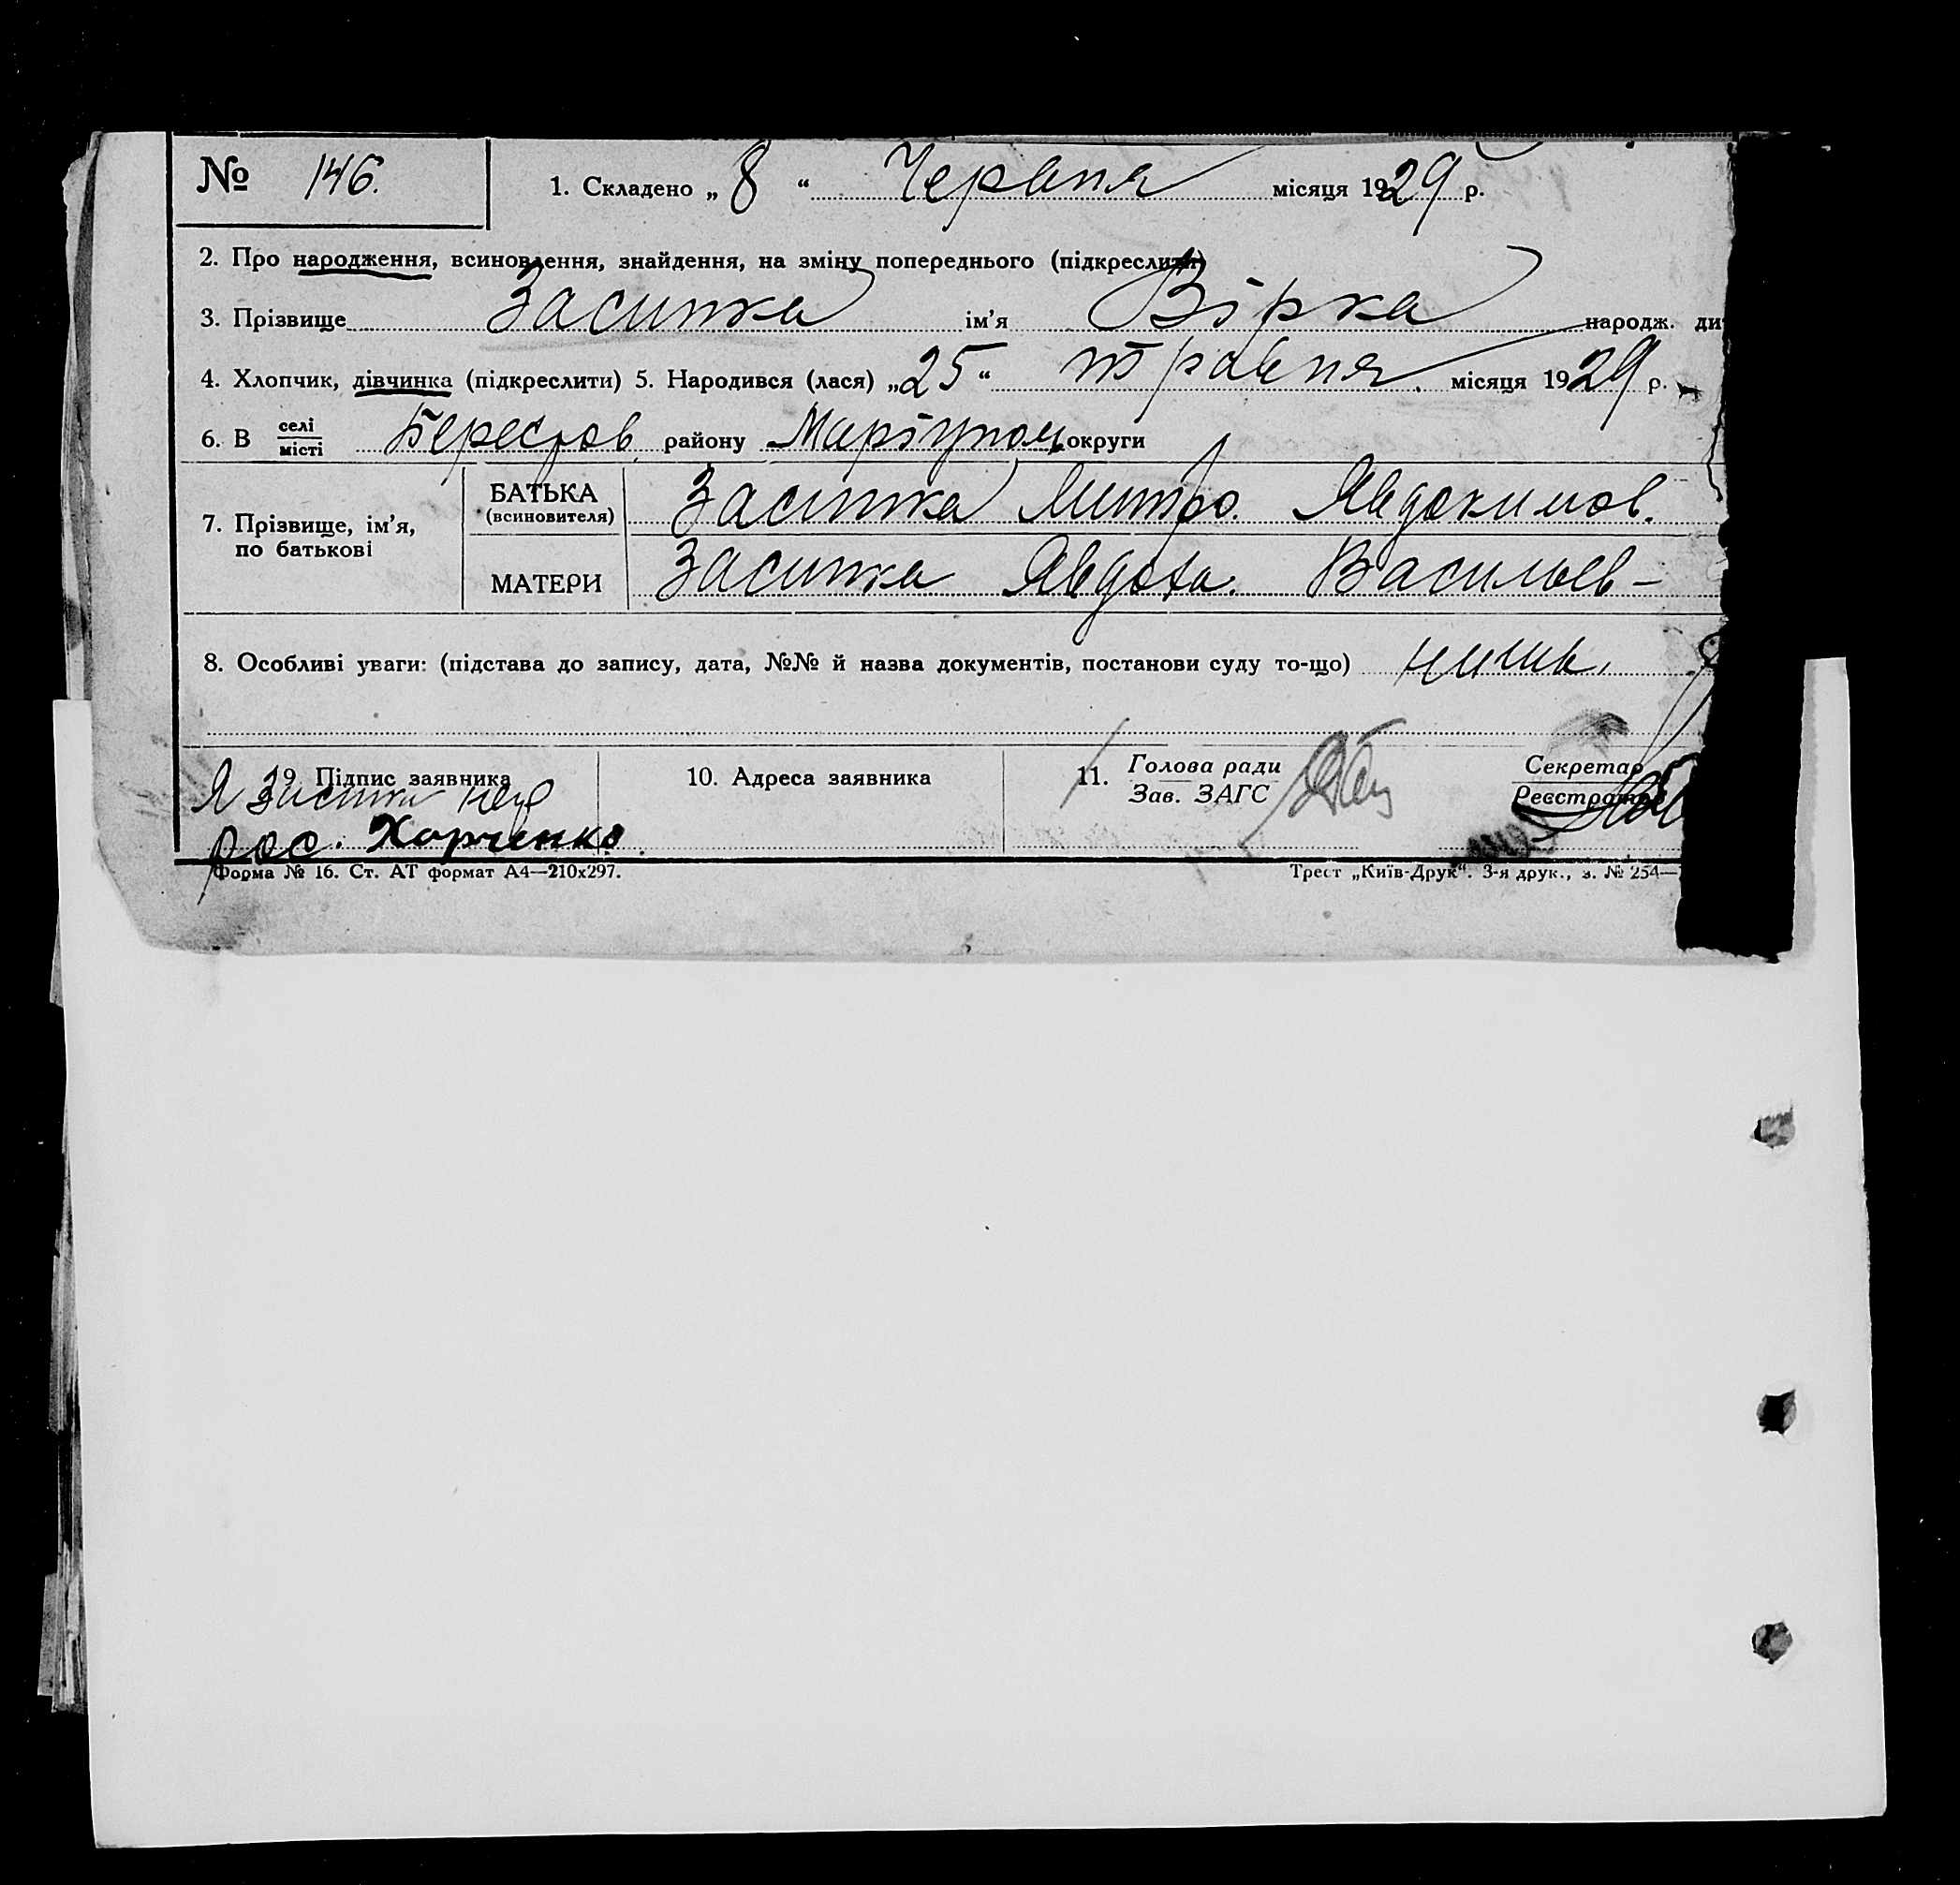 № 146. 1. Складено „ 8 “ Червня місяця 1929 р.
2. Про народження, всиновлення, знайдення, на зміну попереднього (підкреслити)
3. Прізвище Засипка ім’я Вірка народж. ди
4. Хлопчик, дівчинка (підкреслити) 5. Народився (лася) „25“ травня. місяця 1929 р.
6. В селі місті Берестов. району Маріупол. округи
7. Прізвище, ім’я, по батькові
БАТЬКА (всиновителя) Засипка Митро. Явдокимов.
МАТЕРИ Засипка Явдоха. Васильев–
8. Особливі уваги: (підстава до запису, дата, №№ й назва документів, постанови суду то-що)
9. Підпис заявника 10. Адреса заявника 11. Голова ради Секретар
Зав. ЗАГС Реєстратор
Я Засипка
рос. Харченко.
Форма № 16. Ст. АТ формат А4—210х297. Трест „Київ-Друк“. 3-я друк., з. № 254—